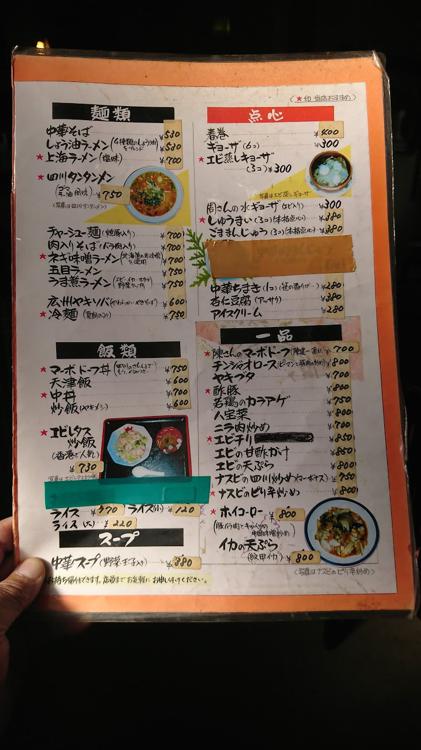 麺類
中華そば ¥530
しょうゆラーメン ¥530
★上海ラーメン(塩味) ¥700
★四川タンタンメン ¥750
チャーシュー麺 ¥700
肉入りそば ¥700
★ネギ味噌ラーメン ¥700
五目ラーメン ¥750
うま煮ラーメン ¥750
広州ヤキソバ ¥600
★冷麺 ¥750
飯類
★マーボ丼 ¥750
天津飯 ¥600
中丼 ¥700
炒飯(ヤキメシ) ¥600
★エビレタス
炒飯
(香港で人気)
¥730
ライス ¥170 ライス(小) ¥120
ライス(大) ¥220
スープ
中華スープ(野菜・玉子入り) ¥380
お持ち帰りできます。店員までお気軽にお申しつけください。
点心
(★印 当店おすすめ)
春巻 ¥400
ギョーザ(6コ) ¥300
★エビ蒸しギョーザ
(3コ) ¥300
(写真はエビ蒸しギョーザ)
周さんの水ギョーザ ¥300
★しゅうまい(3コ)(本格点心) ¥380
ごままんじゅう(3コ)(本格点心) ¥380
中華ちまき(1コ) ¥280
杏仁豆腐 ¥280
アイスクリーム ¥280
一品
★陳さんのマーボドーフ ¥700
チンジャオロース ¥800
★ヤキブタ ¥700
★酢豚 ¥800
若鶏のカラアゲ ¥750
八宝菜 ¥800
ニラ肉炒め ¥700
★エビチリ ¥850
エビの甘酢かけ ¥850
エビの天ぷら ¥850
ナスビの四川炒め ¥750
★ナスビのピリ辛炒め ¥800
★ホイコーロー ¥800
イカの天ぷら
(紋甲イカ) ¥800
(写真はナスビのピリ辛炒め)